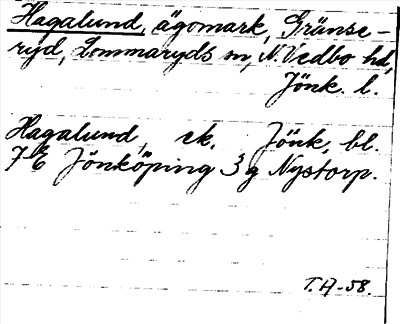 Hagalund, ägomark, Gränse-
ryd, Lommaryds sn, N. Vedbo hd,
Jönk. l.
Hagalund, ek. Jönk. bl.
7E Jönköping 3g Nystorp.
T.A-58.